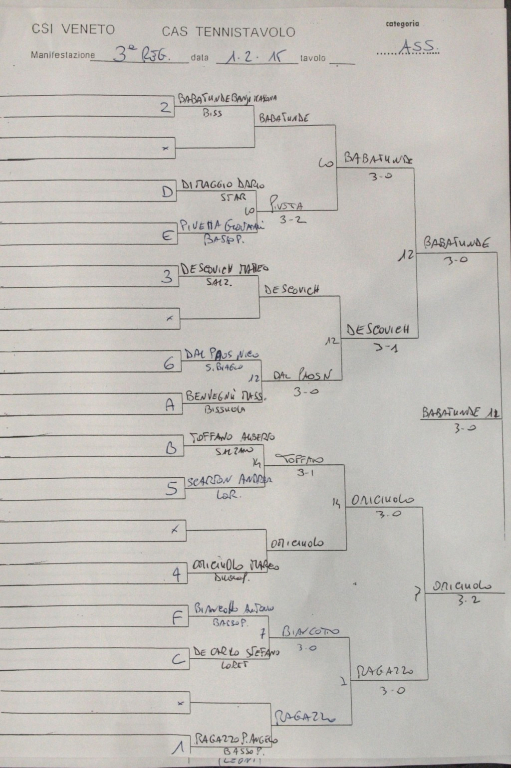 categoria
CSI VENETO CAS TENNISTAVOLO
ASS.
Manifestazione 3ª REG. data 1.2.15 tavolo
2 BABATUNDE
BISS
BABATUNDE
x
10 BABATUNDE
3-0
D DI MAGGIO DARIO
STAR
10
3-2
E PIVETTA GIOVANNI
BASSOP.
12 BABATUNDE
3-0
3 DESCOVICH MARCO
SALZ.
DESCOVICH
x
12 DESCOVICH
3-1
6 DAL PAOS NICO
S. BIAGIO
12 DAL PAOS N
3-0
A BENVEGNÙ MASS.
BISSUOLA
BABATUNDE 12
3-0
B TOFFANO ALBERTO
SALZANO
14 TOFFANO
3-1
5 SCARTON ANDREA
LOR.
14 ORICIUOLO
3-0
x
ORICIUOLO
4 ORICIUOLO MARCO
7 ORICIUOLO
3-2
F BIANCOTTO ANTONIO
BASSOP.
7 BIANCOTTO
3-0
C DE CARLO STEFANO
LORET
RAGAZZO
3-0
x
RAGAZZO
1 RAGAZZO P. ANGELO
BASSOP.